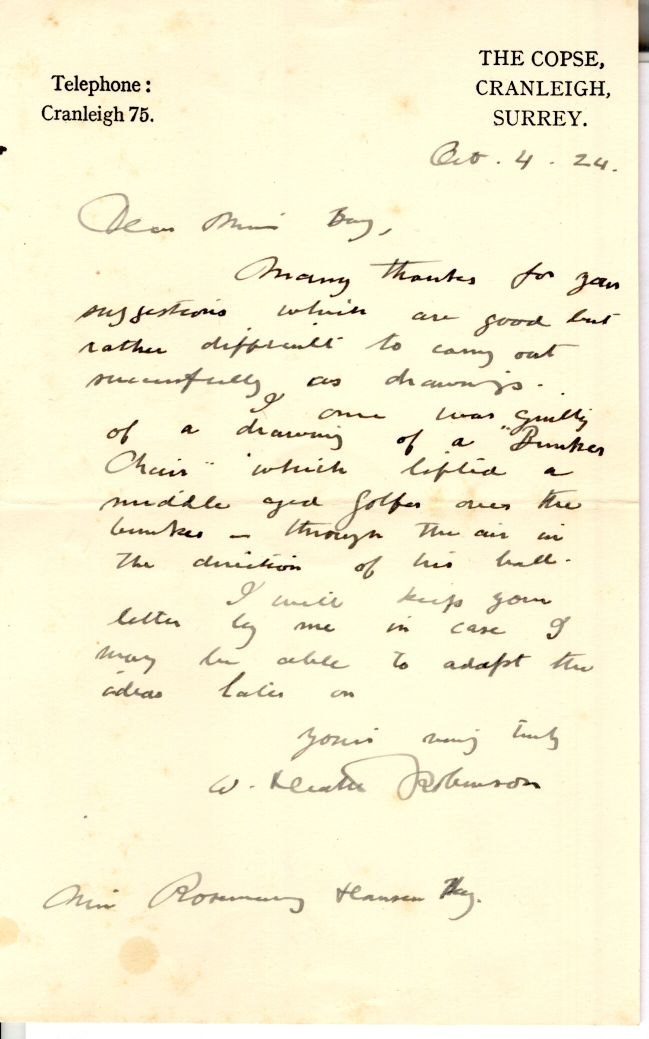 Telephone:
Cranleigh 75.
THE COPSE,
CRANLEIGH,
SURREY.
Oct. 4. 24.
Dear Miss Bay,
Many thanks for your
suggestions which are good but
rather difficult to carry out
successfully as drawings.
I once was guilty
of a drawing of a "Bunker
Chair" which lifted a
middle aged golfer over the
bunker – through the air in
the direction of his ball.
I will keep your
letter by me in case I
may be able to adapt the
ideas later on
Yours very truly
W. Heath Robinson
Miss Rosemary Hansen Bay.